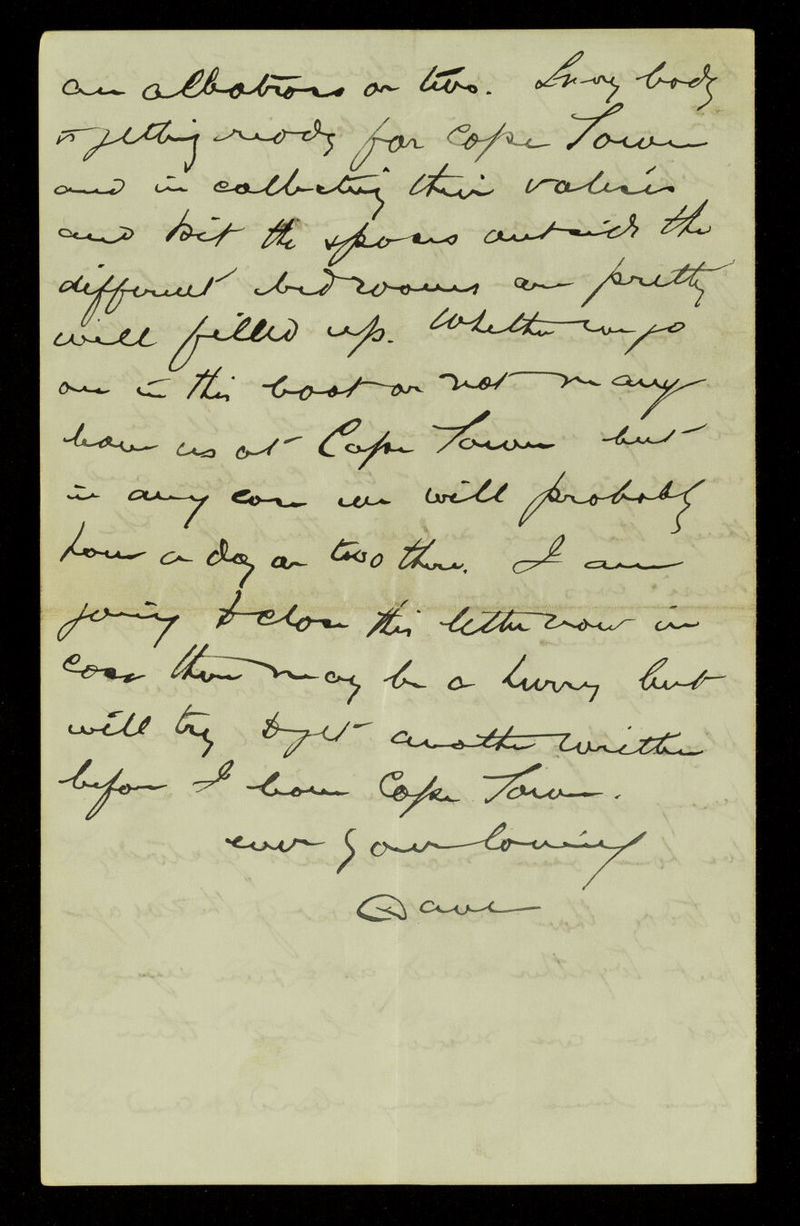 an albatross or two. Every body
is getting ready for Cape Town
and in collecting their valises
and kit the spaces outside the
different bedrooms are pretty
well filled up. Whether we go
on in this boat or not may
leave us at Cape Town but
in any case we will probably
have a day or two there. I am
going to close this letter now in
case there may be a hurry but
will try to get another written
before I leave Cape Town.
ever your loving
Dave